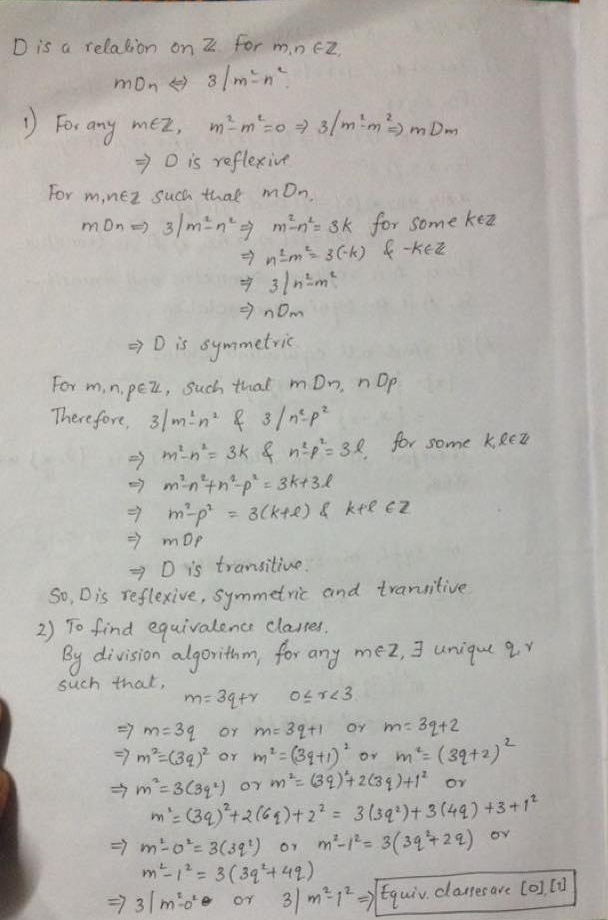 D is a relation on ℤ. For m,n ∈ ℤ,
mDn ⇔ 3/m²-n².
1) For any m∈ℤ, m²-m²=0 ⇒ 3/m²-m² ⇒ mDm
⇒ D is reflexive
For m,n∈ℤ such that mDn.
mDn ⇒ 3/m²-n² ⇒ m²-n²= 3k for some k∈ℤ
⇒ n²-m²= 3(-k) & -k∈ℤ
⇒ 3/n²-m²
⇒ nDm
⇒ D is symmetric.
For m,n,p∈ℤ, such that mDn, nDp
Therefore, 3/m²-n² & 3/n²-p²
⇒ m²-n²= 3k & n²-p²= 3l, for some k,l∈ℤ
⇒ m²-n²+n²-p² = 3k+3l
⇒ m²-p² = 3(k+l) & k+l ∈ℤ
⇒ mDp
⇒ D is transitive.
So, D is reflexive, symmetric and transitive
2) To find equivalence classes.
By division algorithm, for any m∈ℤ, ∃ unique q,r
such that,
m=3q+r 0≤r<3
⇒ m=3q or m=3q+1 or m=3q+2
⇒ m²=(3q)² or m²=(3q+1)² or m²= (3q+2)²
⇒ m²=3(3q²) or m²= (3q)²+2(3q)+1² or
m²= (3q)²+2(6q)+2² = 3(3q²)+3(4q)+3+1²
⇒ m²-0²= 3(3q²) or m²-1²= 3(3q²+2q) or
m²-1² = 3(3q²+4q.)
⇒ 3/m²-0² or 3/m²-1² ⇒ Equiv. classes are [0],[1]